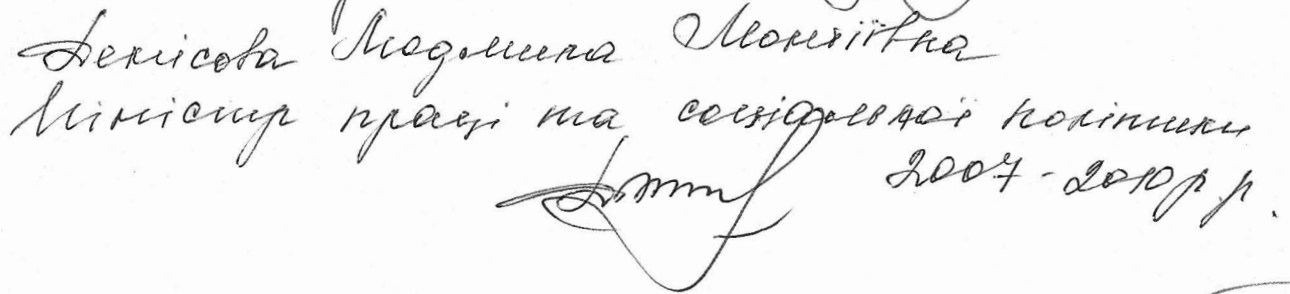 Денісова Людмила Леонтіївна
Міністр праці та соціальної політики
2007-2010 р р.